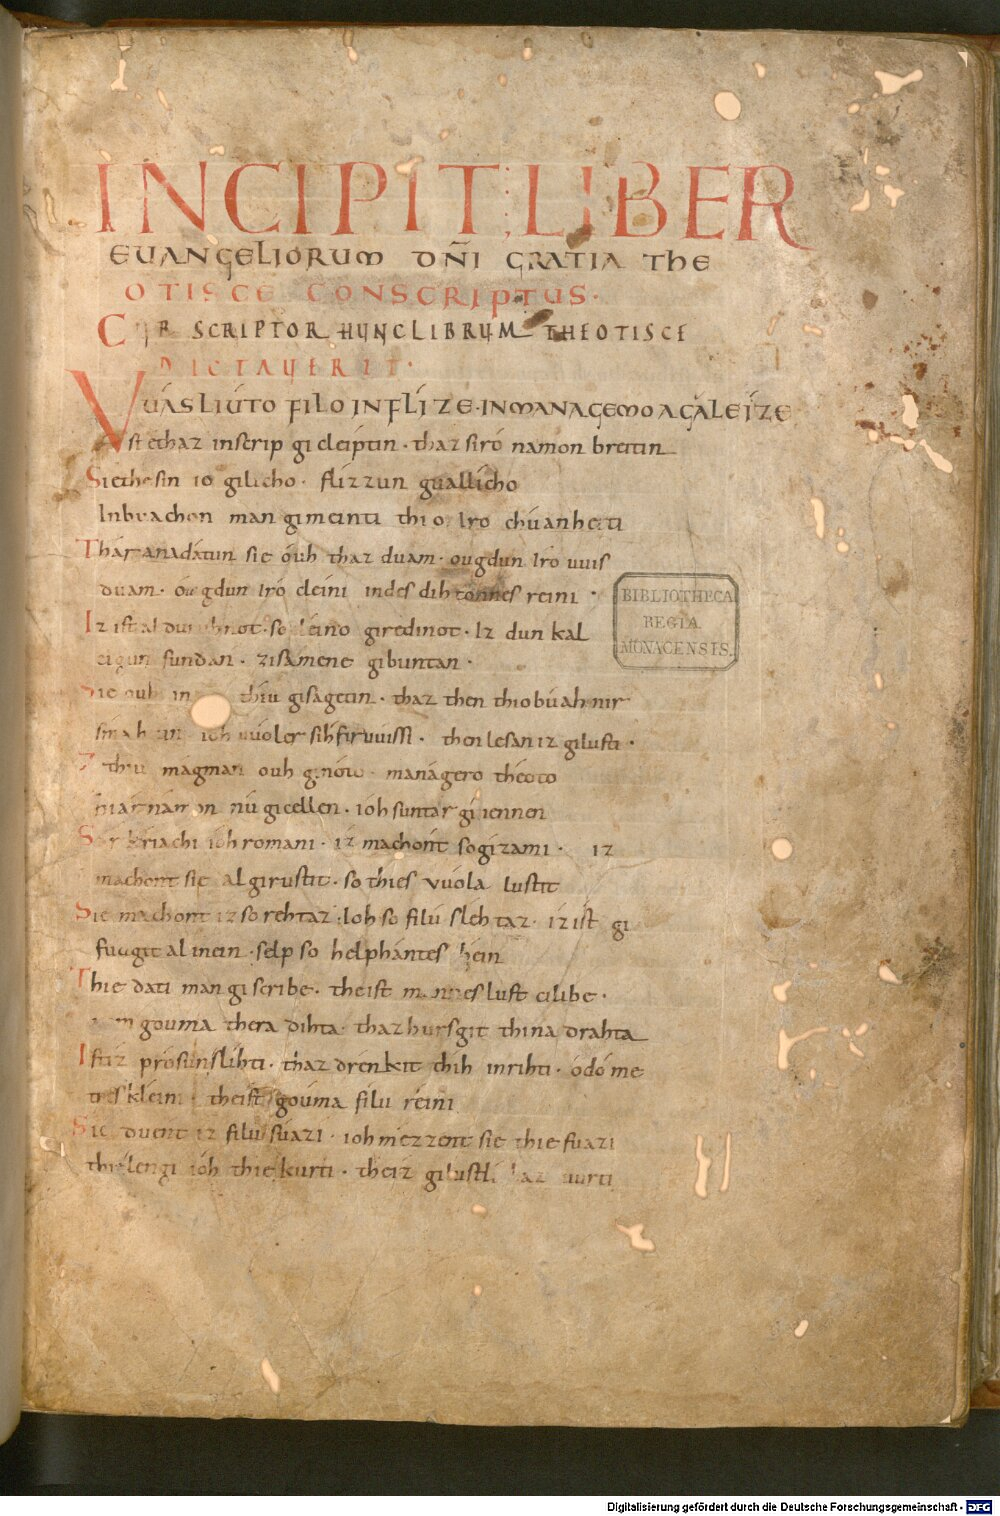 INCIPIT LIBER
EUANGELIORUM DÑI GRATIA THE
OTISCE CONSCRIPTUS·
CUR SCRIPTOR HUNC LIBRUM THEOTISCE
DICTAUERIT·
VUÁS LIÚTO FILO IN FLÍZE·IN MANAGEMO AGALEÍZE
st ethaz in scrip gi cleiptin· thaz siró namon breitin
Sie thes in io gilicho· flizzun guallícho
In buachon man gimeinti thio iro chúanheiti
Thár ana dátun sie óuh thaz duam· ougdun iro uuis
duam· óugdun iró cleini in des dihtonnes reini·
Iz ist al duruhnot· so kleino giredinot· Iz dunkal
eigun fundan· zisámene gibuntan·
Sie ouh in thiu gisagetin· thaz then thio búah nir
smahetin ioh uuóler sih firuuissi· then lesan iz gilusti·
Zi thiu mag man ouh ginóto· manágero théoto
hiar námon nú gizellen· ioh suntar gi nennen
Sar kriachi ioh romani· iz machont so gizami· iz
machont sie al girustit· so thies vuola lustit
Sie machont iz so rehtaz· Ioh so filu slehtaz· iz ist gi
fuogit al in ein· selp so helphántes bein
Thie dati man gi scribe· theist mannes lust zilibe·
gouma thera dihta· thaz hursgit thina drahta
Ist iz prósun slihti· thaz drenkit thih in rihti· ódo me
tres kleini· theist gouma filu reini
Sie duent iz filu súazi· ioh mezzent sie thie fuazi
thie lengi ioh thie kurti· theiz gilustlichaz uurti
BIBLIOTHECA
REGIA
MONACENSIS.
Digitalisierung gefördert durch die Deutsche Forschungsgemeinschaft - DFG